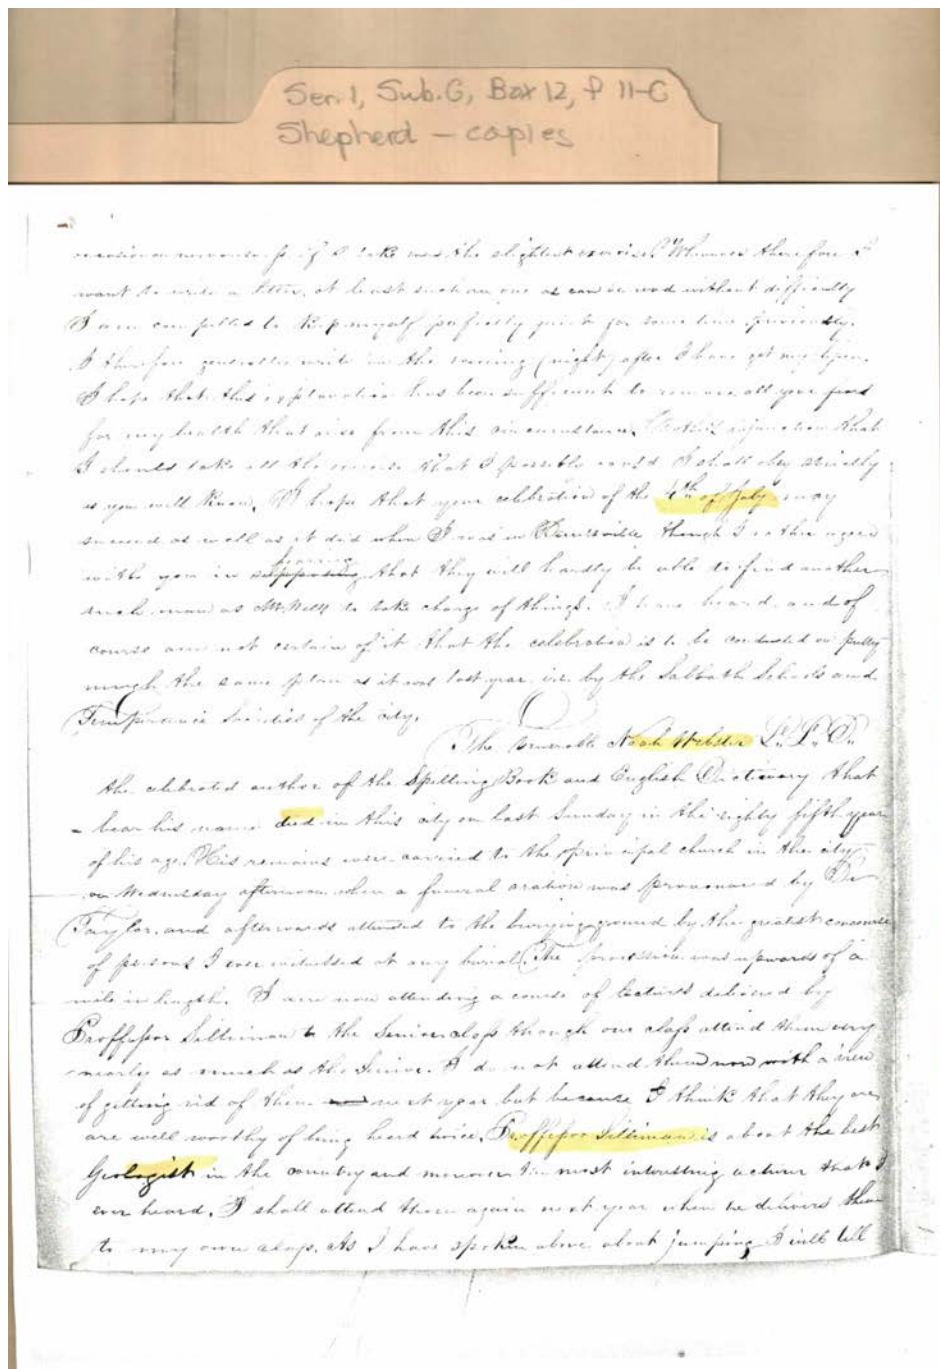 Ser. 1, Sub. G, Box 12, F 11-C
Shepherd — copies
occasion nervousness if I take even the slightest exercise. Whenever therefore I
want to write a letter, at least such an one as can be read without difficulty
I am compelled to keep myself perfectly quiet for some time previously.
I therefore generally write in the evening (night) after I have got my
I hope that this explanation has been sufficient to remove all your fears
for my health that arise from this circumstance. Mother's injunction that
I should take all the exercise that I possibly could I shall obey strictly
as you well know. I hope that your celebration of the 4th of July may
succeed as well as it did when I was in though I rather agree
with you in that they will hardly be able to find another
such man as Mr. to take charge of things. I have heard, and of
course am not certain of it that the celebration is to be conducted on pretty
much the same plan as it was last year, i.e. by the Sabbath Schools and
Temperance Societies of the city.
The venerable Noah Webster L.L.D.
the celebrated author of the Spelling Book and English Dictionary that
bear his name died in this city on last Sunday in the eighty fifth year
of his age. His remains were carried to the principal church in the city
on Wednesday afternoon when a funeral oration was pronounced by Dr
Taylor, and afterwards attended to the burying ground by the greatest concourse
of persons I ever witnessed at any burial. The procession was upwards of a
mile in length. I am now attending a course of lectures delivered by
Proffessor Silliman to the Senior class though our class attend them very
nearly as much as the Senior. I do not attend them now with a view
of getting rid of them next year but because I think that they are
are well worthy of being heard twice. Proffessor Silliman is about the best
Geologist in the country and moreover the most interesting lecturer that I
ever heard. I shall attend them again next year when he delivers them
to my own class. As I have spoken above about jumping, I will tell